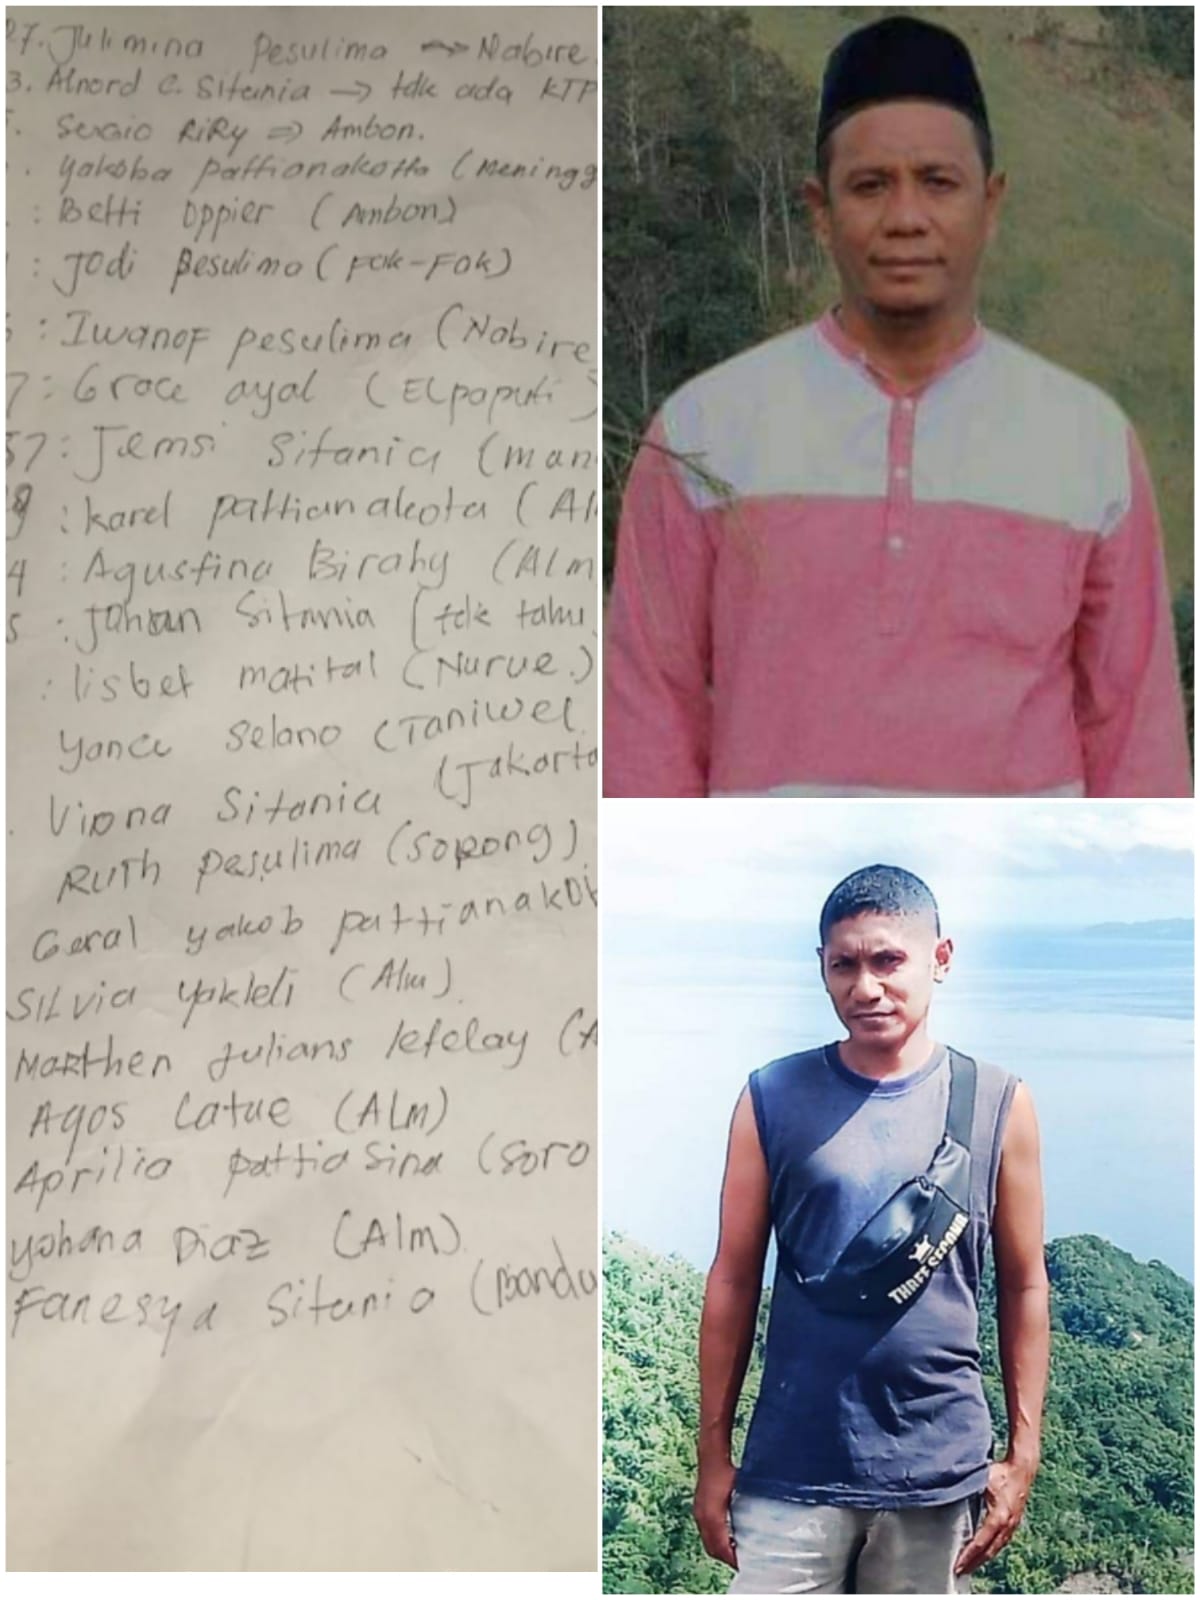 27. Julimina Pesulima → Nabire
3. Alnord C. Sitania → tdk ada KTP
Sergio RiRy ⇒ Ambon.
Yakoba pattianakotta (Mening
: Betti Oppier (Ambon)
: Jodi Pesulima (Fak-Fak)
: Iwanof pesulima (Nabire
7: Grace ayal (Elpaputi)
57: Jemsi Sitania (man
9: karel pattianakota (Al
4: Agustina Birahy (Alm
5: Johan Sitania (tdk tahu
: lisbet matital (Nurue.)
Yance Selano (Taniwel
Viona Sitania (Jakarta
RUTH pesulima (Sorong)
Geral yakob pattianakot
SILvia Yakleli (Alm)
Marthen Julians lefelay (A
Agos Latue (ALm)
Aprilia pattiasina (Soro
yohana Diaz (Alm)
Fanesya Sitania (Bandu
THREE SECOND